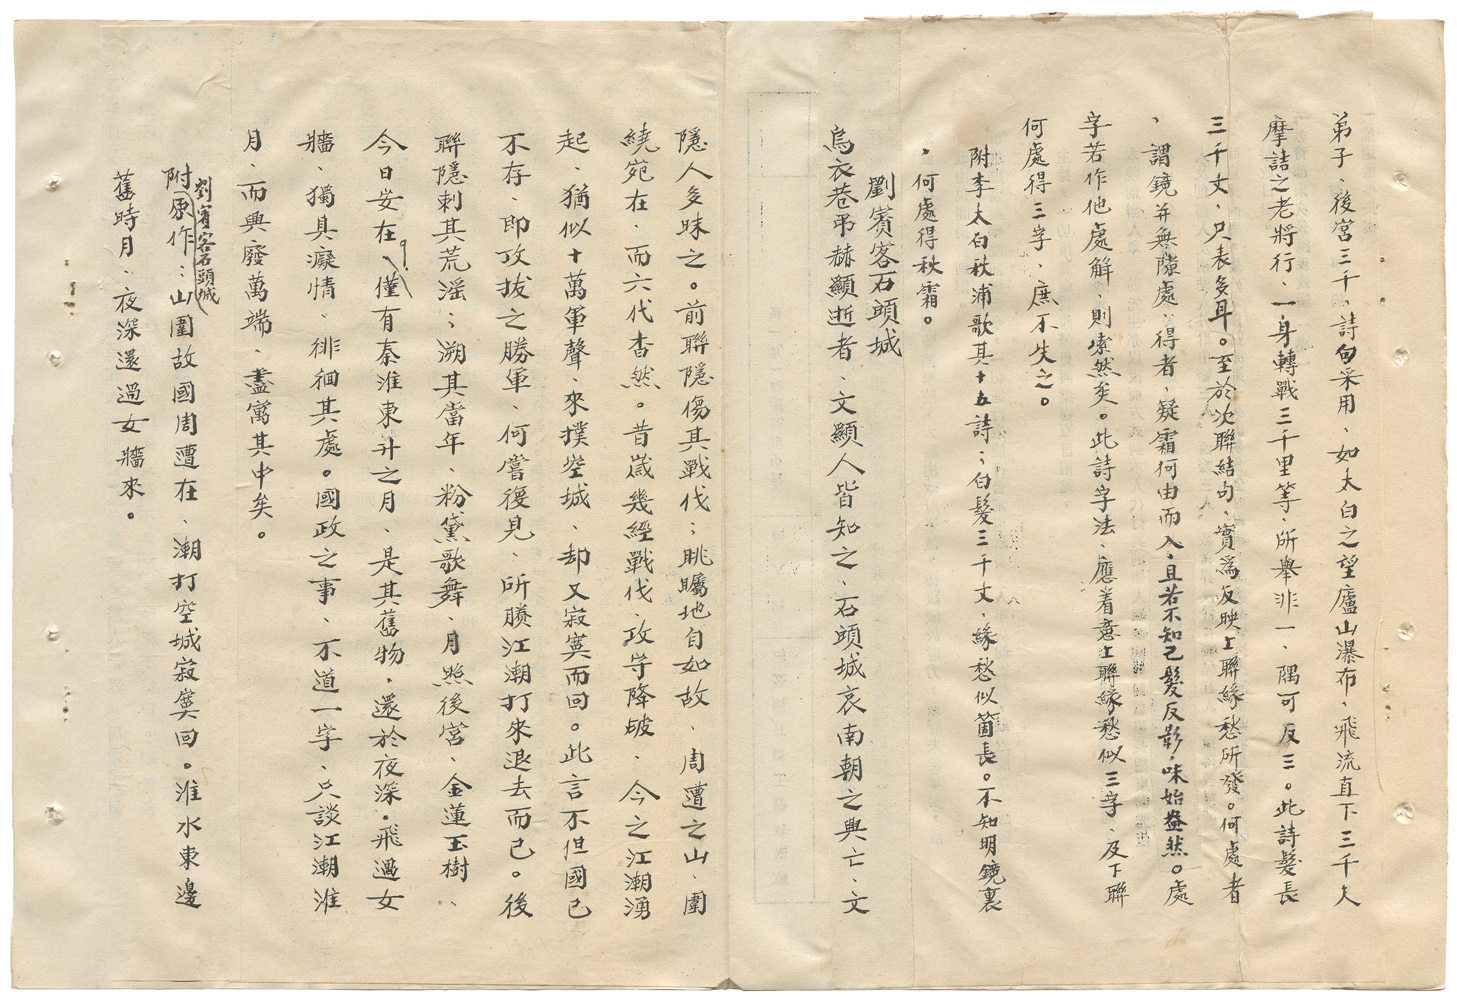 弟子、後宮三千、詩句采用、如太白之望廬山瀑布、飛流直下三千尺
摩詰之老將行、一身轉戰三千里等、所舉非一、隅可反三。此詩髮長
三千丈、只表多耳。至於次聯結句、實為反映上聯緣愁所發。何處者
、謂鏡并無隙處、得者、疑霜何由而入、且若不知己髮反影、味始盎然。處
字若作他處解、則索然矣。此詩字法、應着意上聯緣愁似三字、及下聯
何處得三字、庶不失之。
附李太白秋浦歌其十五詩：白髮三千丈、緣愁似箇長。不知明鏡裏
、何處得秋霜。
劉賓客石頭城
烏衣巷弔赫顯逝者、文顯人皆知之、石頭城哀南朝之興亡、文
隱人多昧之。前聯隱傷其戰伐；眺矚地自如故、周遭之山、圍
繞宛在、而六代杳然。昔歲幾經戰伐、攻守降破、今之江潮湧
起、猶似十萬軍聲、來撲空城、却又寂寞而回。此言不但國已
不存、即攻拔之勝軍、何嘗復見、所賸江潮打來退去而已。後
聯隱刺其荒滛；溯其當年、粉黛歌舞、月照後宮、金蓮玉樹、
今日安在？僅有秦淮東升之月、是其舊物、還於夜深、飛過女
牆、獨具癡情、徘徊其處。國政之事、不道一字、只談江潮淮
月、而興廢萬端、盡寓其中矣。
附劉賓客石頭城原作：山圍故國周遭在、潮打空城寂寞回。淮水東邊
舊時月、夜深還過女牆來。